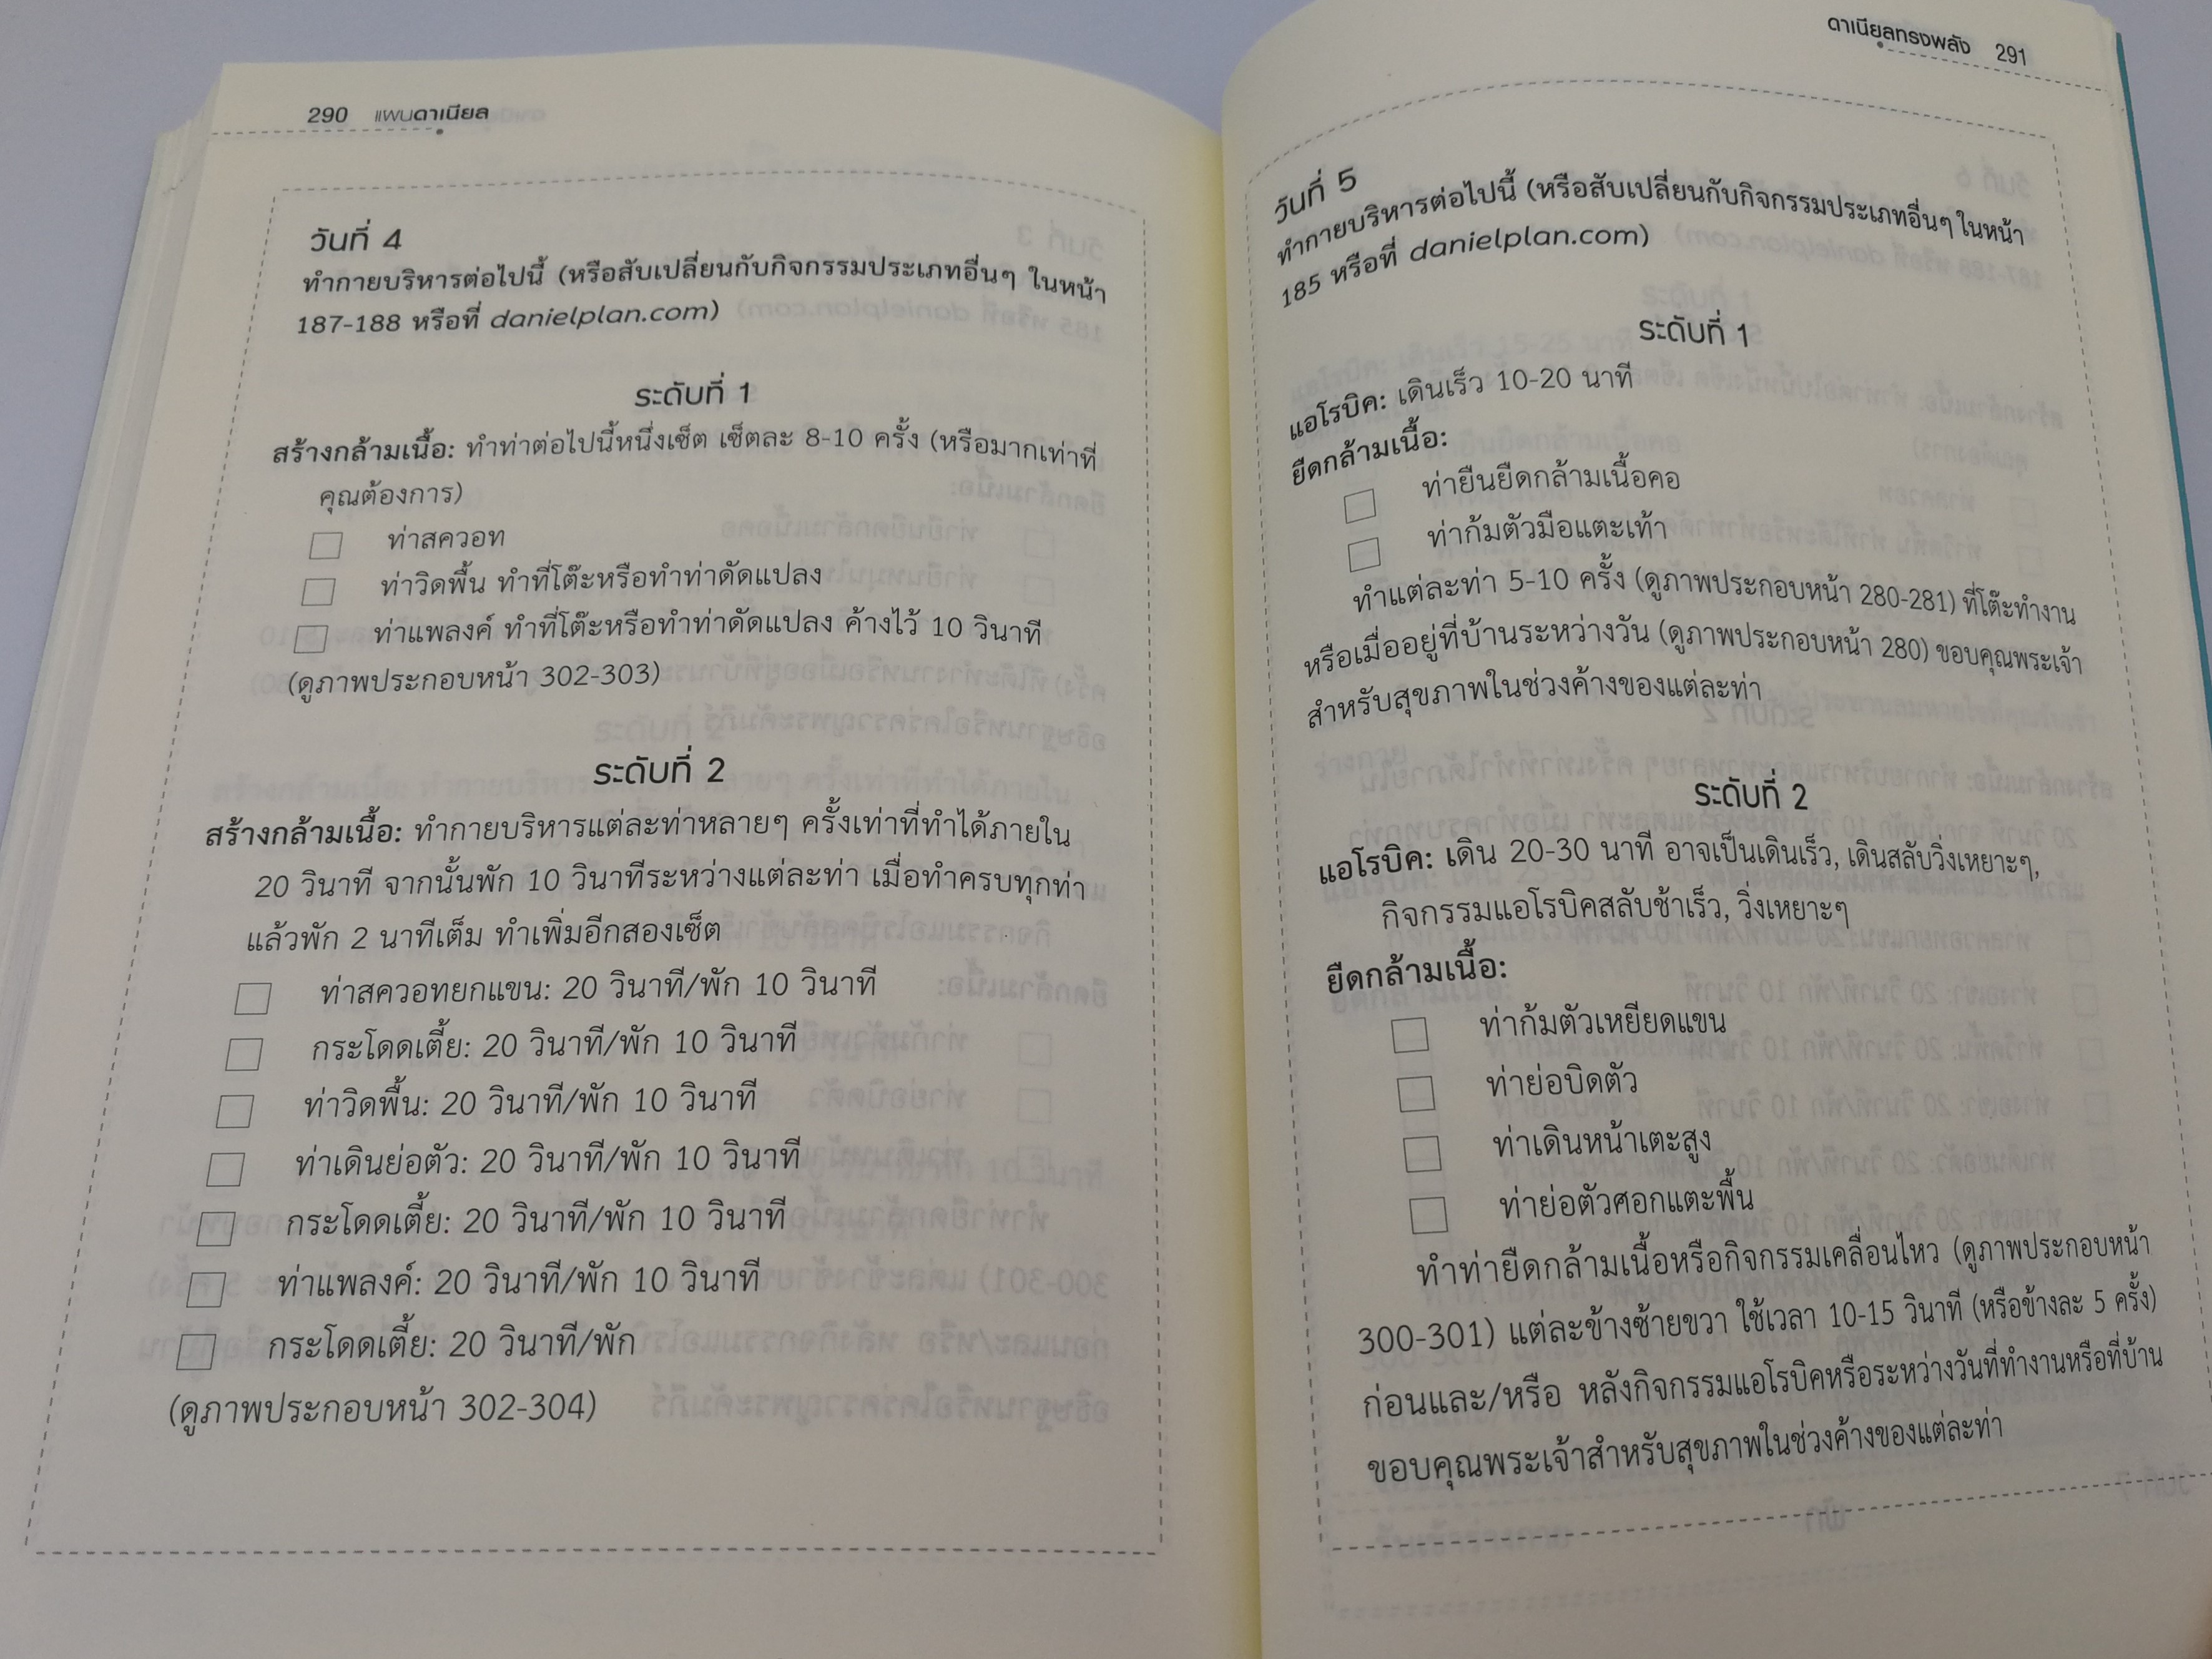 290 แผนดาเนียล
วันที่ 4
ทำกายบริหารต่อไปนี้ (หรือสับเปลี่ยนกับกิจกรรมประเภทอื่นๆ ในหน้า
187-188 หรือที่ danielplan.com)
ระดับที่ 1
สร้างกล้ามเนื้อ: ทำท่าต่อไปนี้หนึ่งเซ็ต เซ็ตละ 8-10 ครั้ง (หรือมากเท่าที่
คุณต้องการ)
ท่าสควอท
ท่าวิดพื้น ทำที่โต๊ะหรือทำท่าดัดแปลง
ท่าแพลงค์ ทำที่โต๊ะหรือทำท่าดัดแปลง ค้างไว้ 10 วินาที
(ดูภาพประกอบหน้า 302-303)
ระดับที่ 2
สร้างกล้ามเนื้อ: ทำกายบริหารแต่ละท่าหลายๆ ครั้งเท่าที่ทำได้ภายใน
20 วินาที จากนั้นพัก 10 วินาทีระหว่างแต่ละท่า เมื่อทำครบทุกท่า
แล้วพัก 2 นาทีเต็ม ทำเพิ่มอีกสองเซ็ต
ท่าสควอทยกแขน: 20 วินาที/พัก 10 วินาที
กระโดดเตี้ย: 20 วินาที/พัก 10 วินาที
ท่าวิดพื้น: 20 วินาที/พัก 10 วินาที
ท่าเดินย่อตัว: 20 วินาที/พัก 10 วินาที
กระโดดเตี้ย: 20 วินาที/พัก 10 วินาที
ท่าแพลงค์: 20 วินาที/พัก 10 วินาที
กระโดดเตี้ย: 20 วินาที/พัก
(ดูภาพประกอบหน้า 302-304)
ดาเนียลทรงพลัง 291
วันที่ 5
ทำกายบริหารต่อไปนี้ (หรือสับเปลี่ยนกับกิจกรรมประเภทอื่นๆ ในหน้า
185 หรือที่ danielplan.com)
ระดับที่ 1
แอโรบิค: เดินเร็ว 10-20 นาที
ยืดกล้ามเนื้อ:
ท่ายืนยืดกล้ามเนื้อคอ
ท่าก้มตัวมือแตะเท้า
ทำแต่ละท่า 5-10 ครั้ง (ดูภาพประกอบหน้า 280-281) ที่โต๊ะทำงาน
หรือเมื่ออยู่ที่บ้านระหว่างวัน (ดูภาพประกอบหน้า 280) ขอบคุณพระเจ้า
สำหรับสุขภาพในช่วงค้างของแต่ละท่า
ระดับที่ 2
แอโรบิค: เดิน 20-30 นาที อาจเป็นเดินเร็ว, เดินสลับวิ่งเหยาะๆ,
กิจกรรมแอโรบิคสลับช้าเร็ว, วิ่งเหยาะๆ
ยืดกล้ามเนื้อ:
ท่าก้มตัวเหยียดแขน
ท่าย่อบิดตัว
ท่าเดินหน้าเตะสูง
ท่าย่อตัวศอกแตะพื้น
ทำท่ายืดกล้ามเนื้อหรือกิจกรรมเคลื่อนไหว (ดูภาพประกอบหน้า
300-301) แต่ละข้างซ้ายขวา ใช้เวลา 10-15 วินาที (หรือข้างละ 5 ครั้ง)
ก่อนและ/หรือ หลังกิจกรรมแอโรบิคหรือระหว่างวันที่ทำงานหรือที่บ้าน
ขอบคุณพระเจ้าสำหรับสุขภาพในช่วงค้างของแต่ละท่า